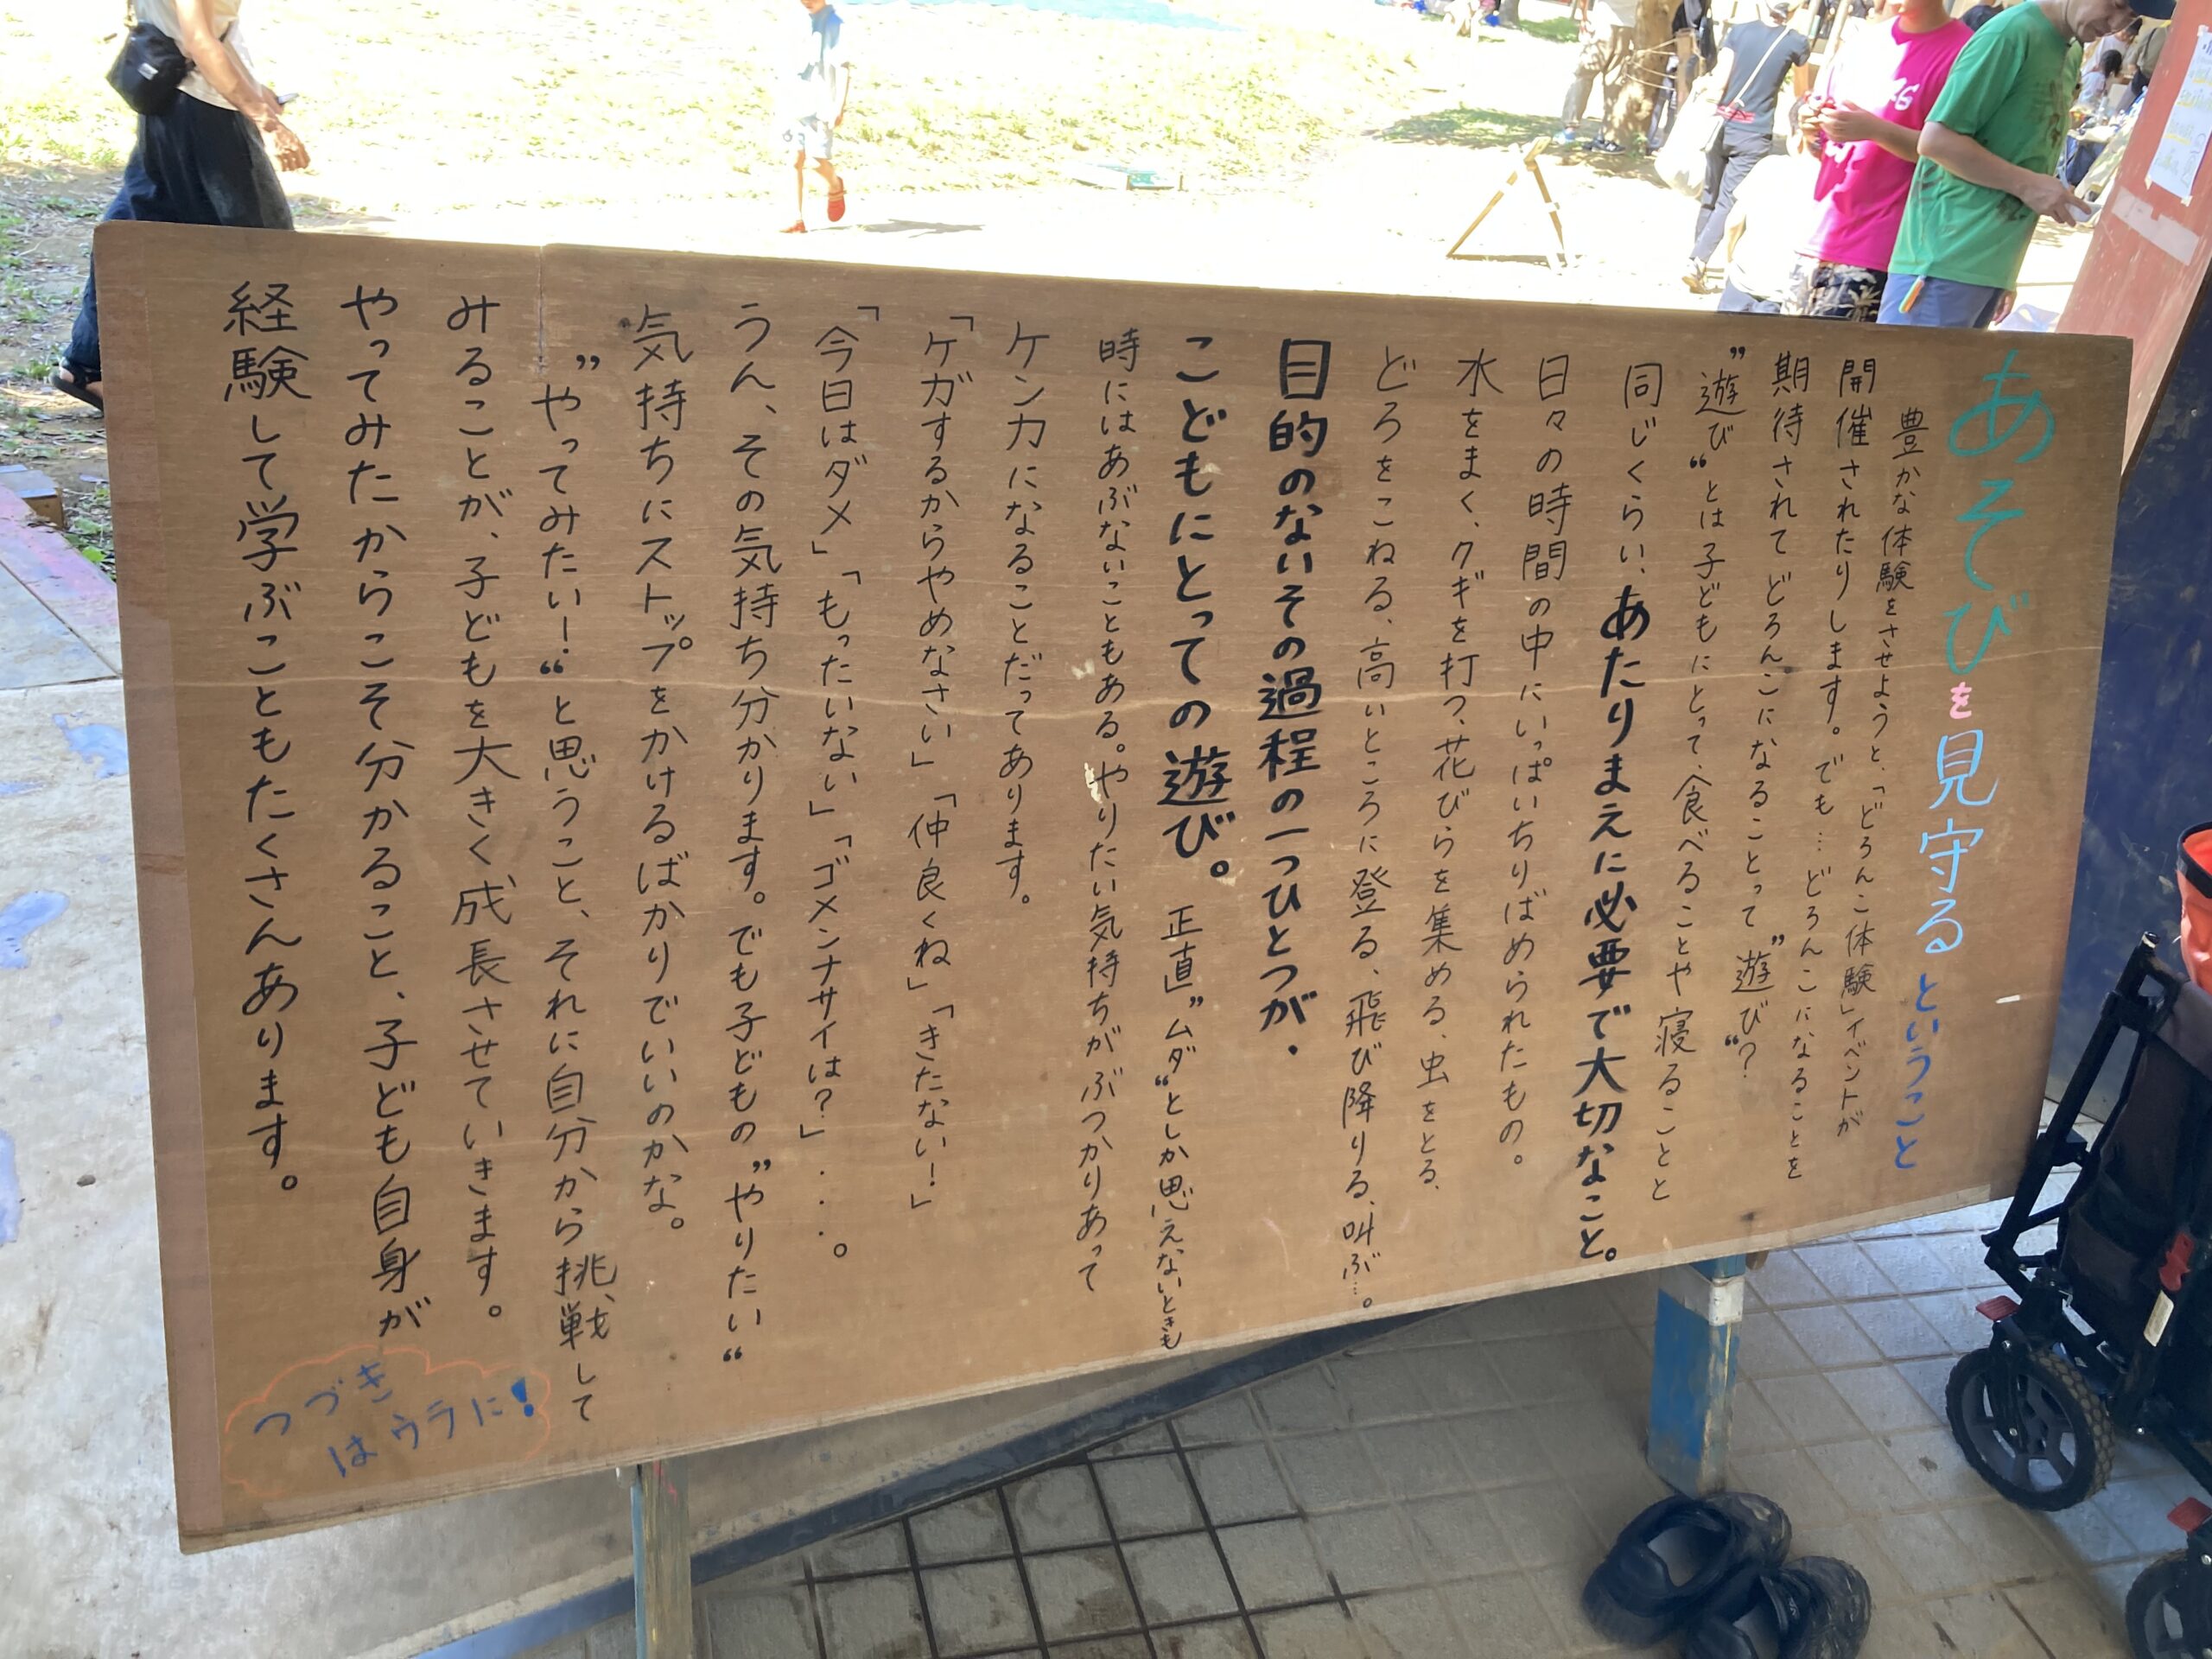 あそびを見守るということ
豊かな体験をさせようと、「どろんこ体験」イベントが
開催されたりします。でも…どろんこになることを
期待されてどろんこになることって”遊び“？
”遊び“とは子どもにとって、食べることや寝ることと
同じくらい、あたりまえに必要で大切なこと。
日々の時間の中にいっぱいちりばめられたもの。
水をまく、クギを打つ、花びらを集める、虫をとる、
どろをこねる、高いところに登る、飛び降りる、叫ぶ…。
目的のないその過程の一つひとつが、
こどもにとっての遊び。正直”ムダ“としか思えないときも
時にはあぶないこともある。やりたい気持ちがぶつかりあって
ケンカになることだってあります。
「ケガするからやめなさい」「仲良くね」「きたない！」
「今日はダメ」「もったいない」「ゴメンナサイは？」・・・。
うん、その気持ち分かります。でも子どもの”やりたい“
気持ちにストップをかけるばかりでいいのかな。
”やってみたい！“と思うこと、それに自分から挑戦して
みることが、子どもを大きく成長させていきます。
やってみたからこそ分かること、子ども自身が
経験して学ぶこともたくさんあります。
つづき
はウラに！